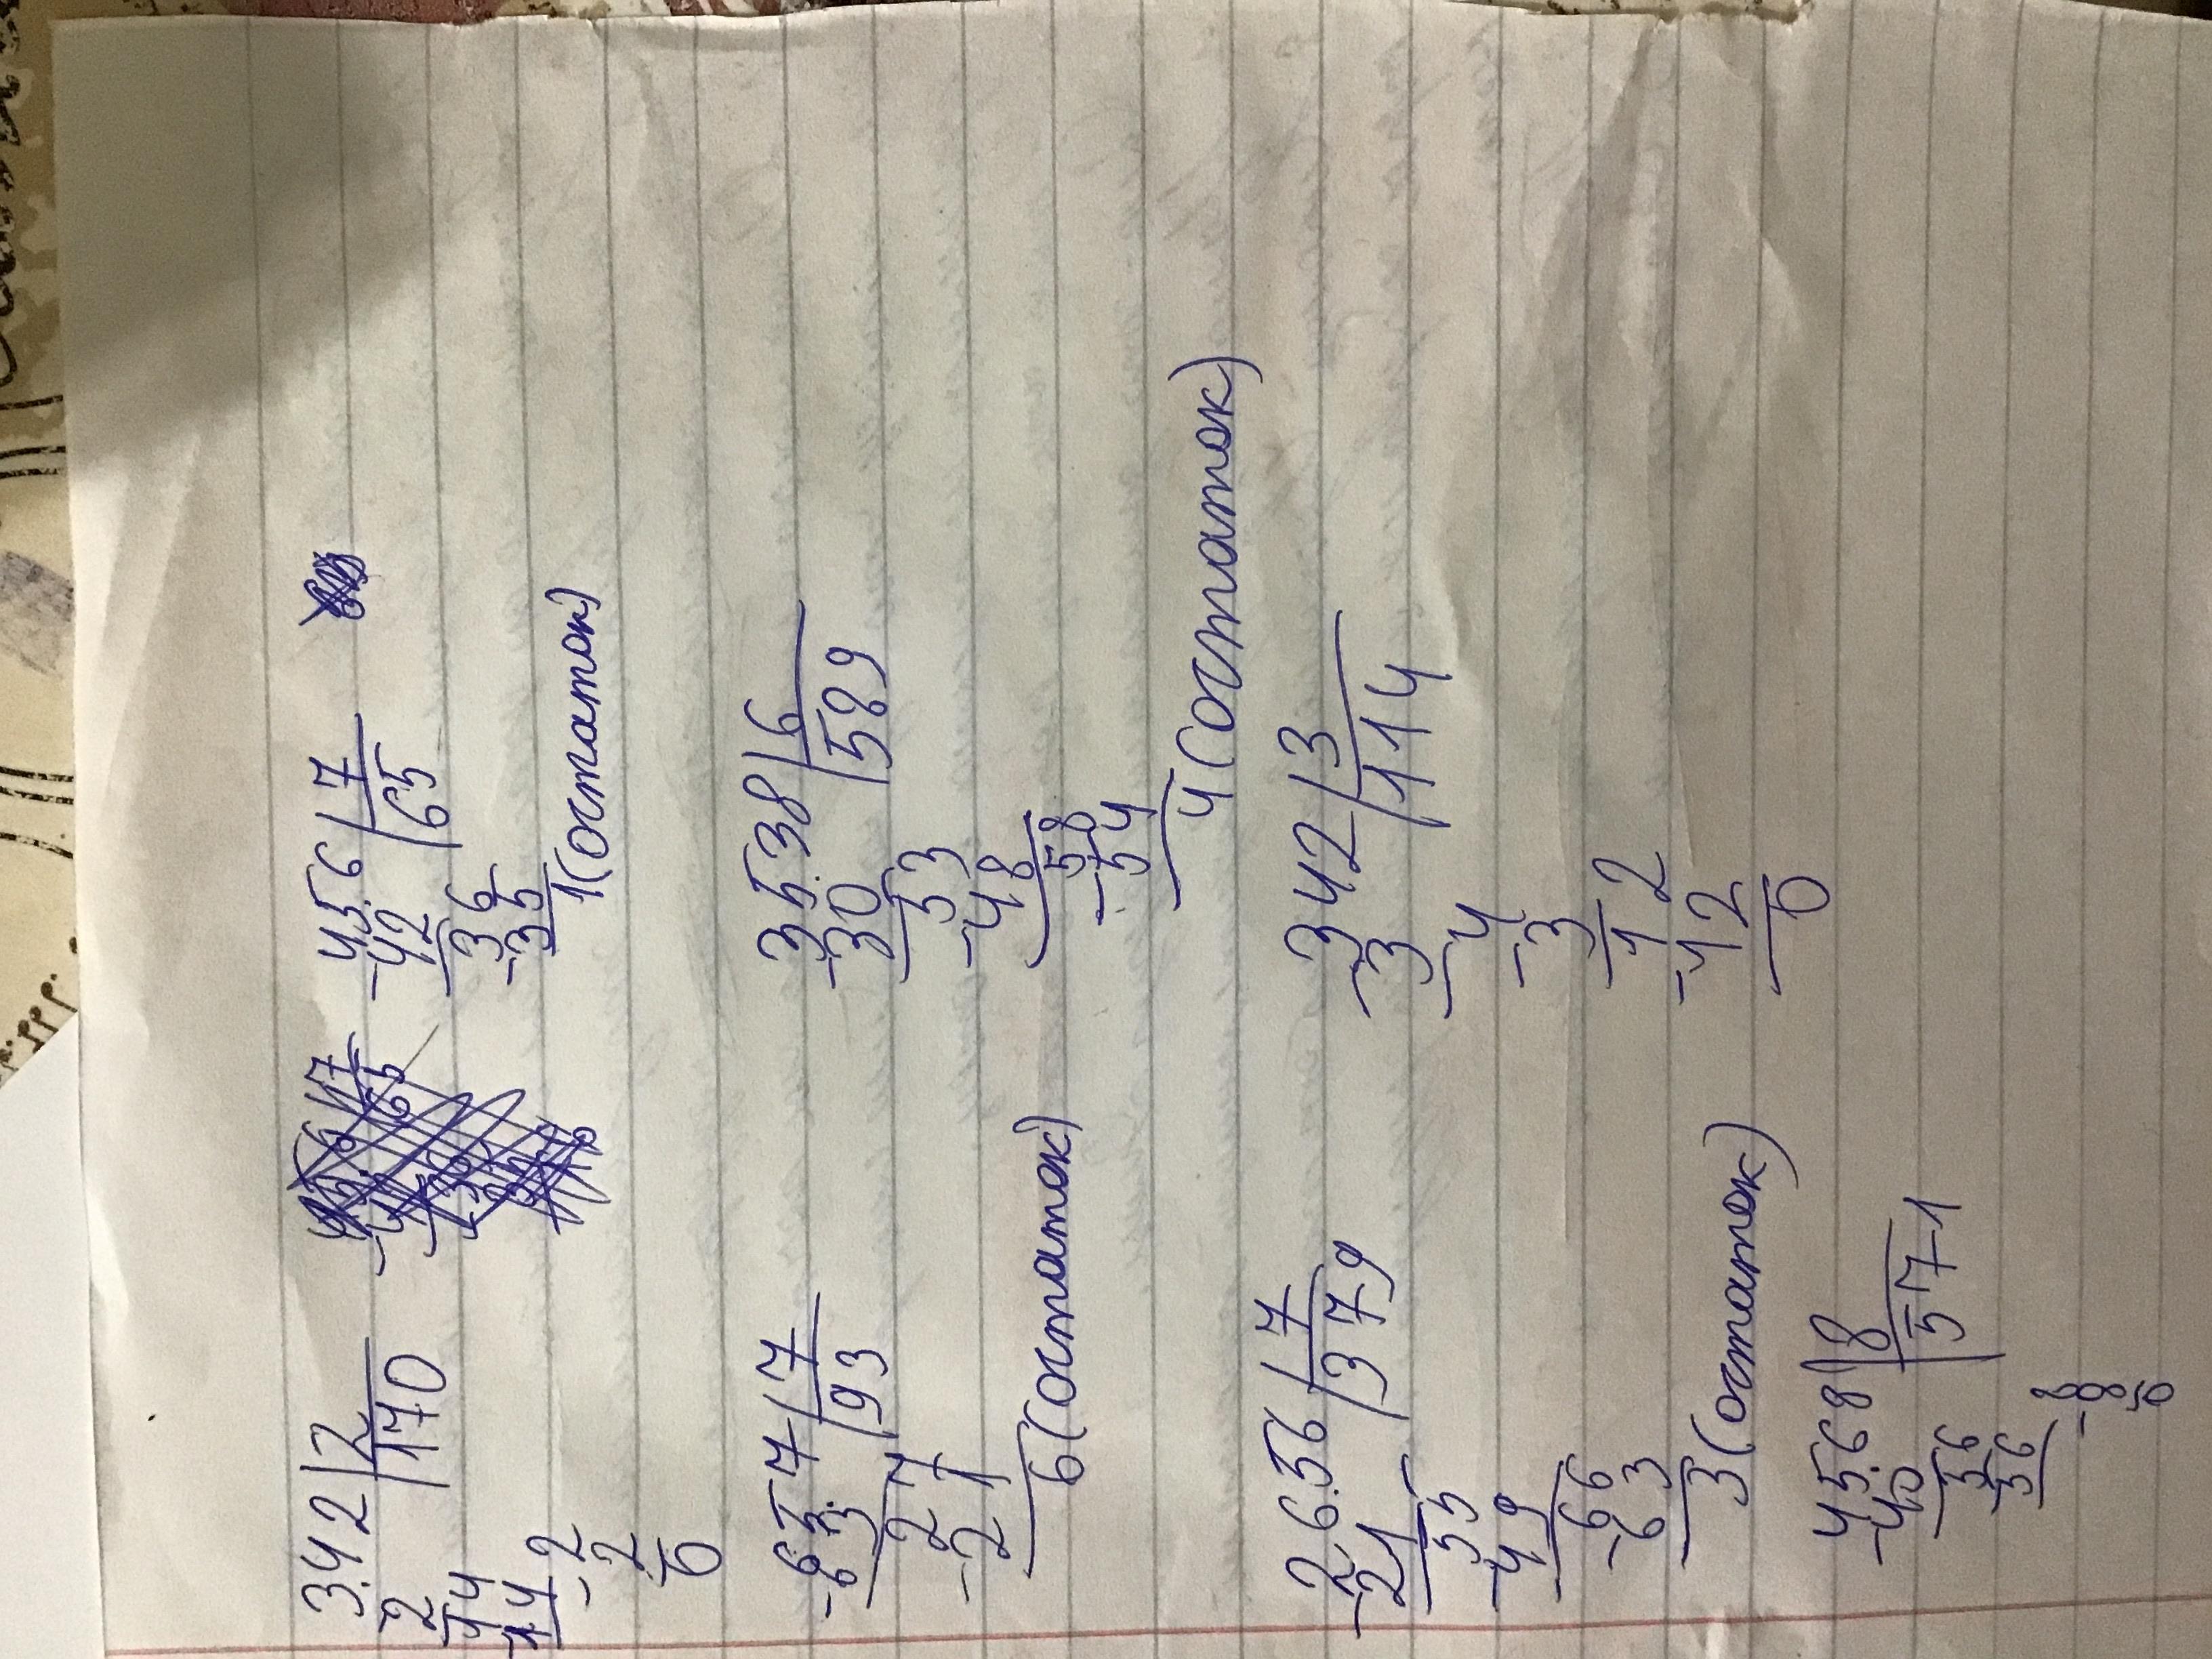 3.42 | 2
2 | 170
14
14
-2
2
0
45.6 | 7
-42 | 65
36
-35
1 (остаток)
65.7 | 7
-63 | 93
27
-21
6 (остаток)
35.38 | 6
-30 | 589
53
-48
58
-54
4 (остаток)
2.6.56 | 7
-21 | 379
55
-49
66
-63
3 (остаток)
342 | 3
-3 | 114
4
-3
12
-12
0
45.68 | 8
-40 | 571
56
56
8
-8
0